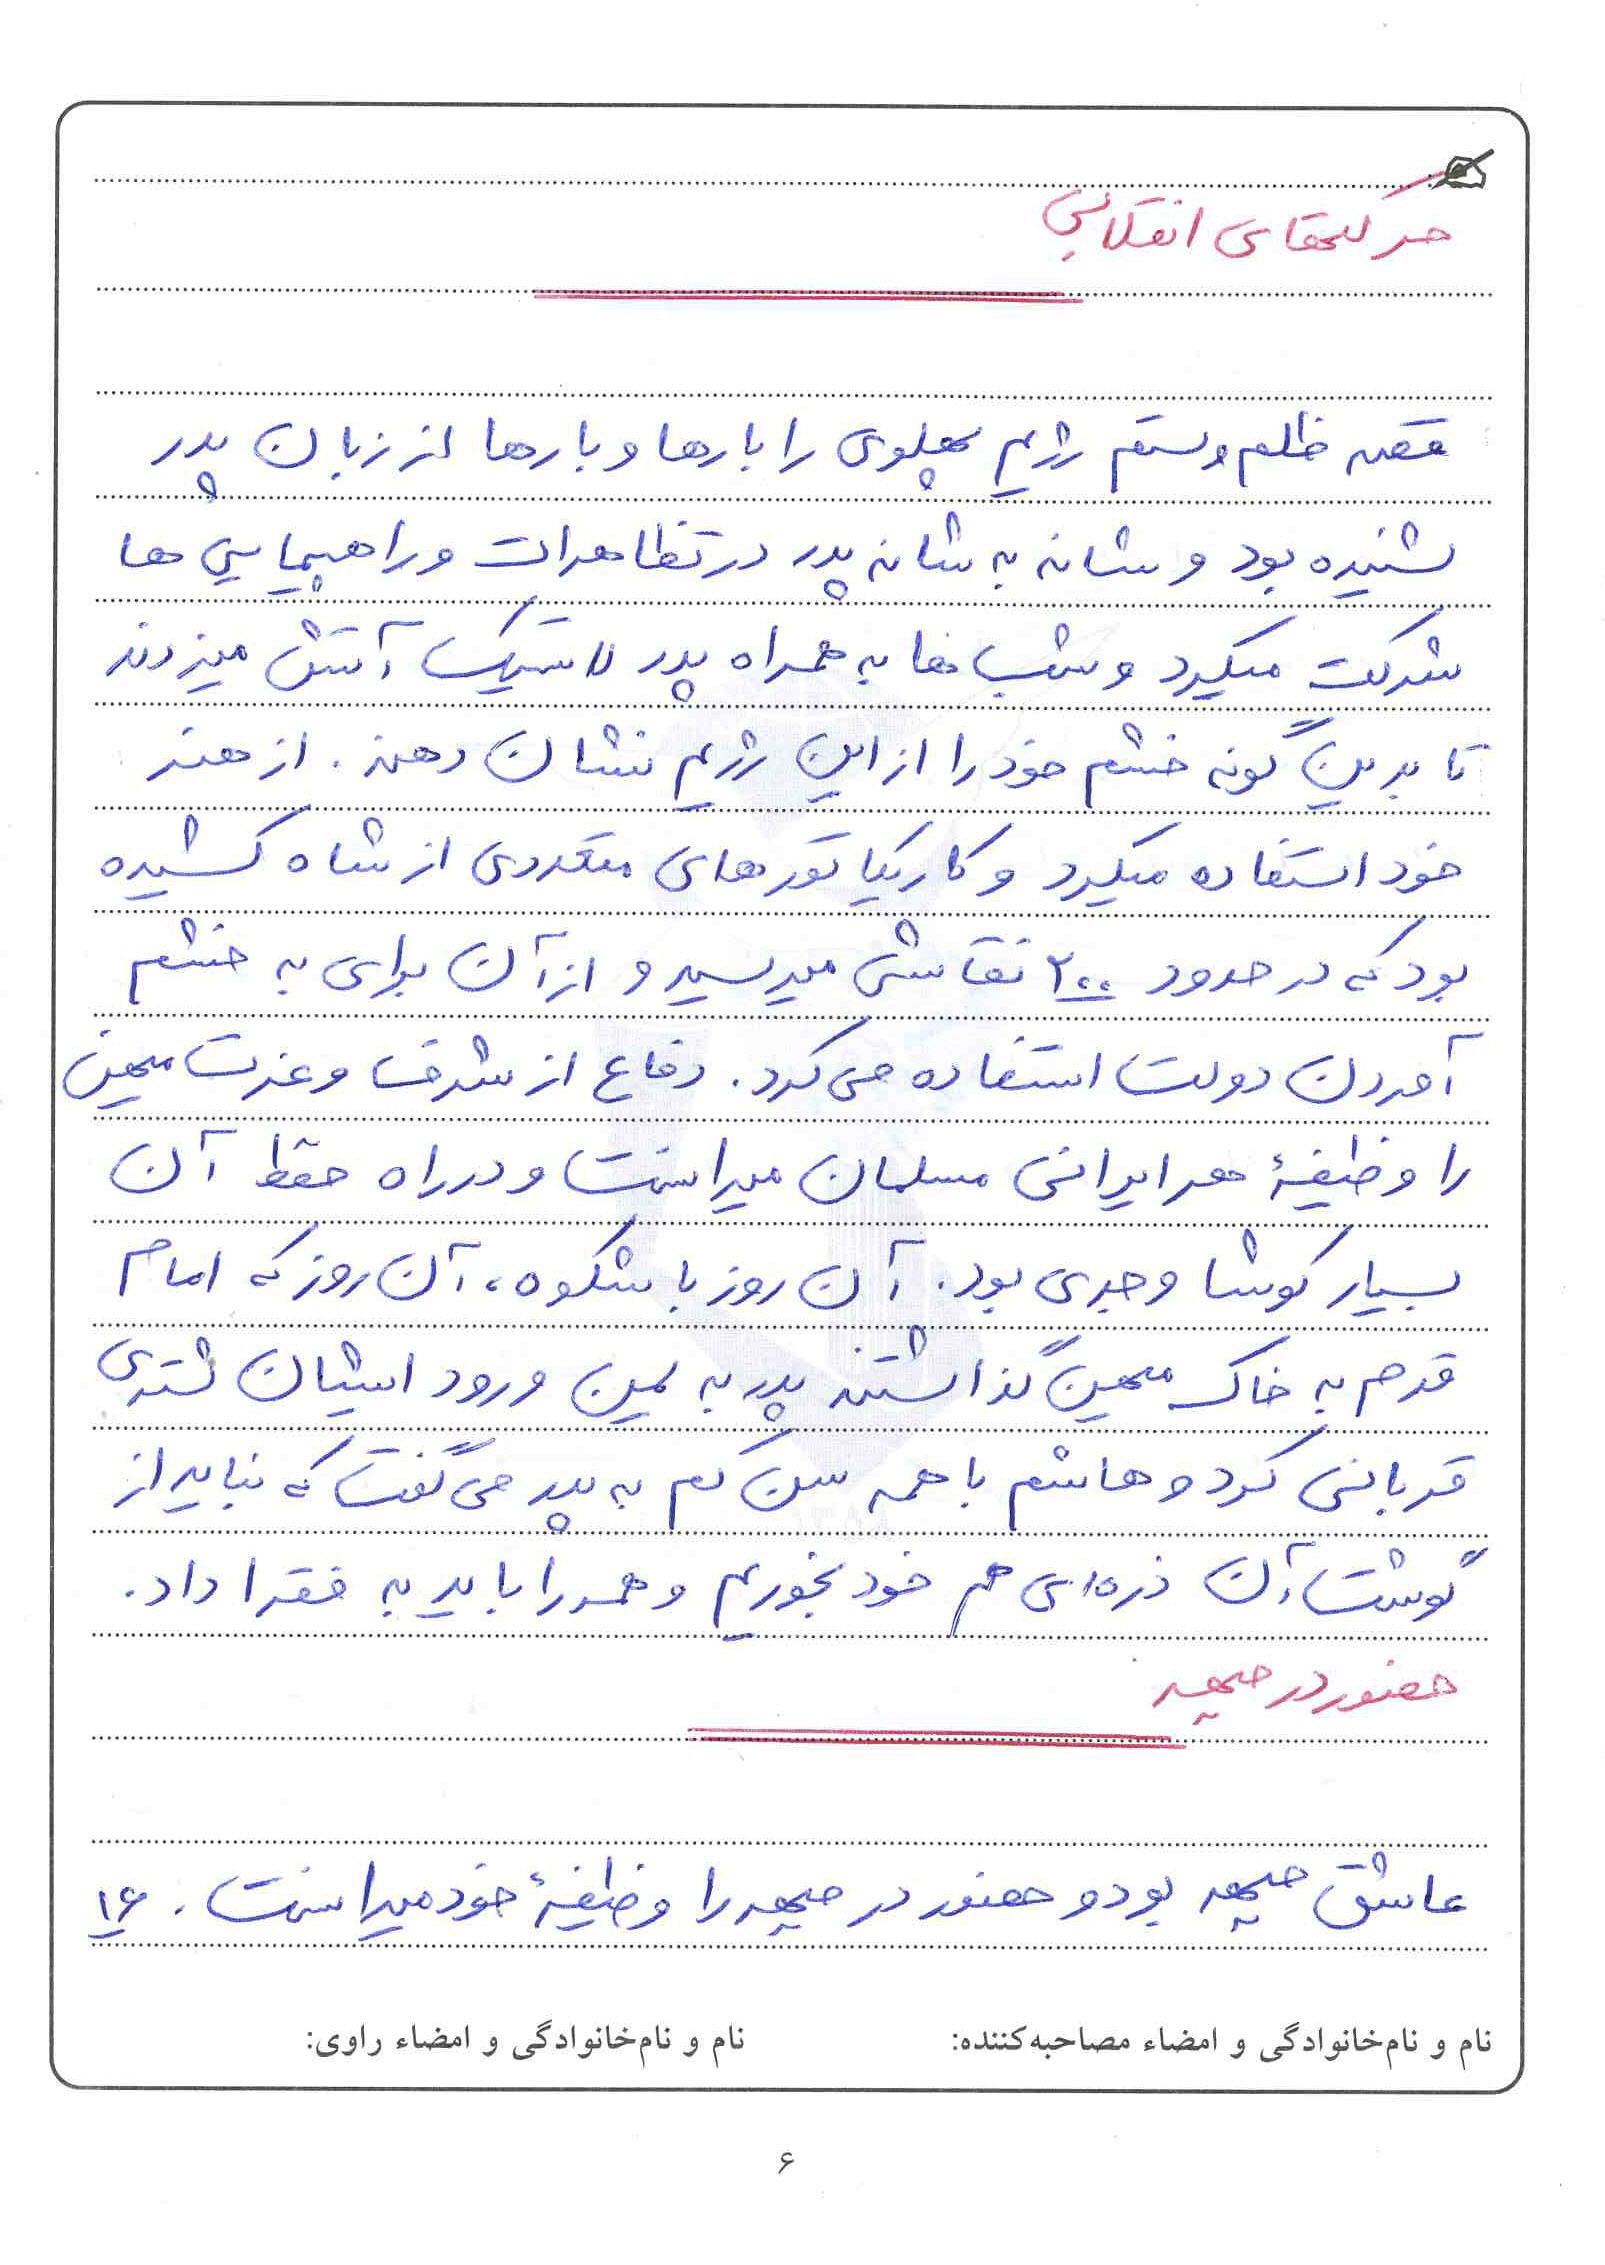 حرکتهای انقلابی
قصه ظلم و ستم رژیم پهلوی را بارها و بارها از زبان پدر
شنیده بود و شانه به شانه پدر در تظاهرات و راهپیمایی ها
شرکت میکرد و شب ها به همراه پدر لاستیک آتش میزدند
تا بدین گونه خشم خود را از این رژیم نشان دهند. از هنر
خود استفاده میکرد و کاریکاتورهای متعددی از شاه کشیده
بود که در حدود ۲۰۰ نقاشی میرسید و از آن برای به خشم
آوردن دولت استفاده می کرد. دفاع از شرف و عزت میهن
را وظیفۀ هر ایرانی مسلمان میدانست و در راه حفظ آن
بسیار کوشا و جدی بود. آن روز با شکوه، آن روز که امام
قدم به خاک میهن گذاشتند پدر به یمن ورود ایشان شتری
قربانی کرد و هاشم با همه سن کم به پدر می گفت که نباید از
گوشت آن ذره ای هم خود بخوریم و همه را باید به فقرا داد.
حضور در جبهه
عاشق جبهه بود و حضور در جبهه را وظیفۀ خود میدانست. ۱۶
نام و نام‌خانوادگی و امضاء مصاحبه‌کننده: نام و نام‌خانوادگی و امضاء راوی:
۶